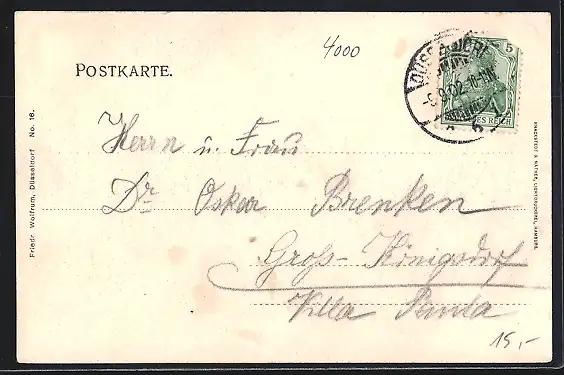 4000
POSTKARTE.
DÜSSELDORF
-6.9.02.
5
ES REICH
Herrn u. Frau
Dr Oskar Brenken
Gross-Königsdorf
Villa
15,-
Friedr. Wolfrum, Düsseldorf No. 16.
KNACKSTEDT & NÄTHER, LICHTDRUCKEREI, HAMBURG.